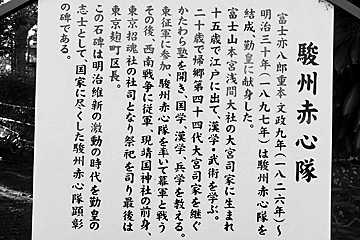 駿州赤心隊
富士亦八郎重本 文政九年(一八二六年)〜
明治三十年(一八九七年)は駿州赤心隊を
結成、勤皇に献身した。
富士山本宮浅間大社の大宮司家に生まれ
十五歳で江戸に出て、漢学・武術を学ぶ。
二十歳で帰郷第四十四代大宮司家を継ぐ
かたわら塾を開き、国学、漢学、兵学を教える。
東征軍に参加 駿州赤心隊を率いて幕軍と戦う
その後、西南戦争に従軍 現靖国神社の前身、
東京招魂社の社司となり祭祀を司り最後は
東京麹町区長。
この石碑は明治維新の激動の時代を勤皇の
志士として、国家に尽くした駿州赤心隊顕彰
の碑である。